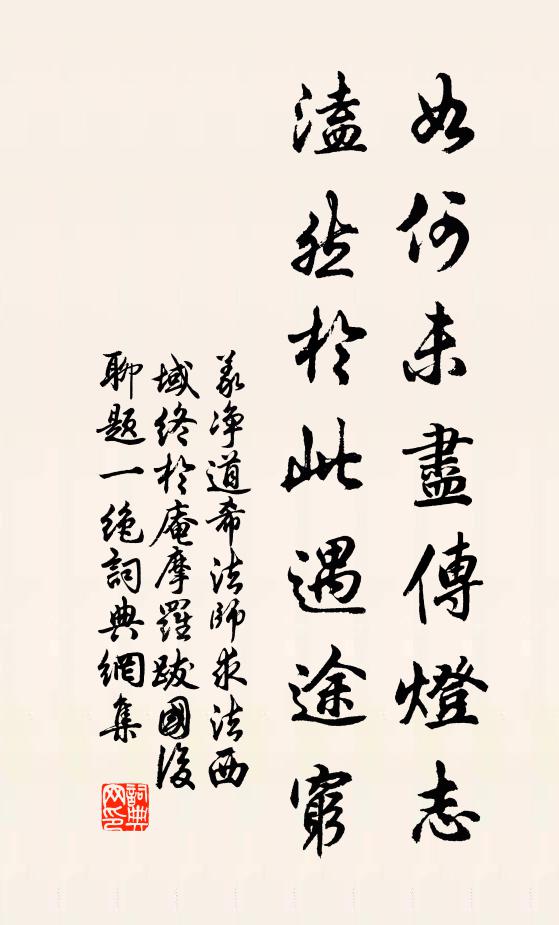 如何未盡傳燈志
溘然於此遇途窮
義净道希法師求法西
域終於庵摩羅跋國後
聊題一絶詞典網集
詞典网印